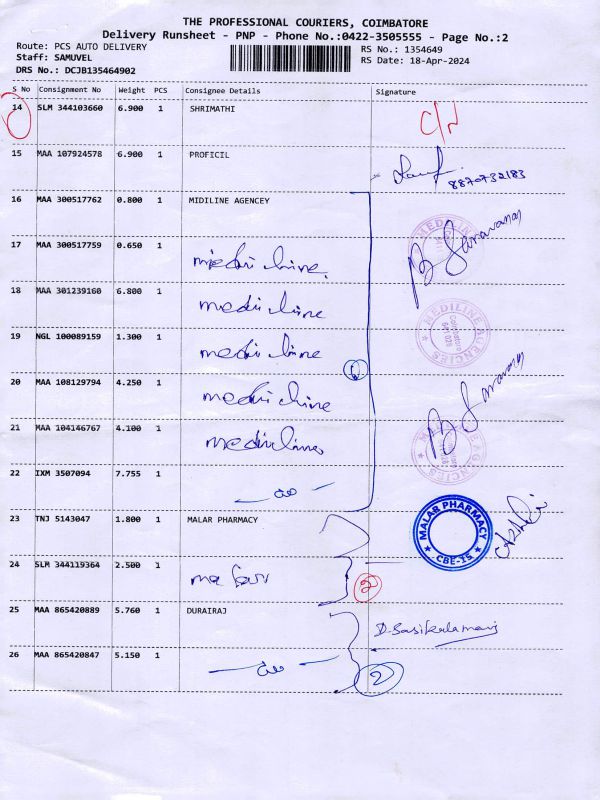 THE PROFESSIONAL COURIERS, COIMBATORE
Delivery Runsheet - PNP - Phone No.:0422-3505555 - Page No.:2
Route: PCS AUTO DELIVERY
Staff: SAMUVEL
DRS No.: DCJB135464902
RS No.: 1354649
RS Date: 18-Apr-2024
S No Consignment No Weight PCS Consignee Details Signature
14 SLM 344103660 6.900 1 SHRIMATHI
15 MAA 107924578 6.900 1 PROFICIL
8870732183
16 MAA 300517762 0.800 1 MIDILINE AGENCEY
17 MAA 300517759 0.650 1
B Saravanan
18 MAA 301239160 6.800 1
MEDILINE AGENCIES
19 NGL 100089159 1.300 1
20 MAA 108129794 4.250 1
6
21 MAA 104146767 4.100 1
B Saravanan
22 IXM 3507094 7.755 1
23 TNJ 5143047 1.800 1 MALAR PHARMACY
MALAR PHARMACY
CBE-15
24 SLM 344119364 2.500 1
2
25 MAA 865420889 5.760 1 DURAIRAJ
26 MAA 865420847 5.150 1
2